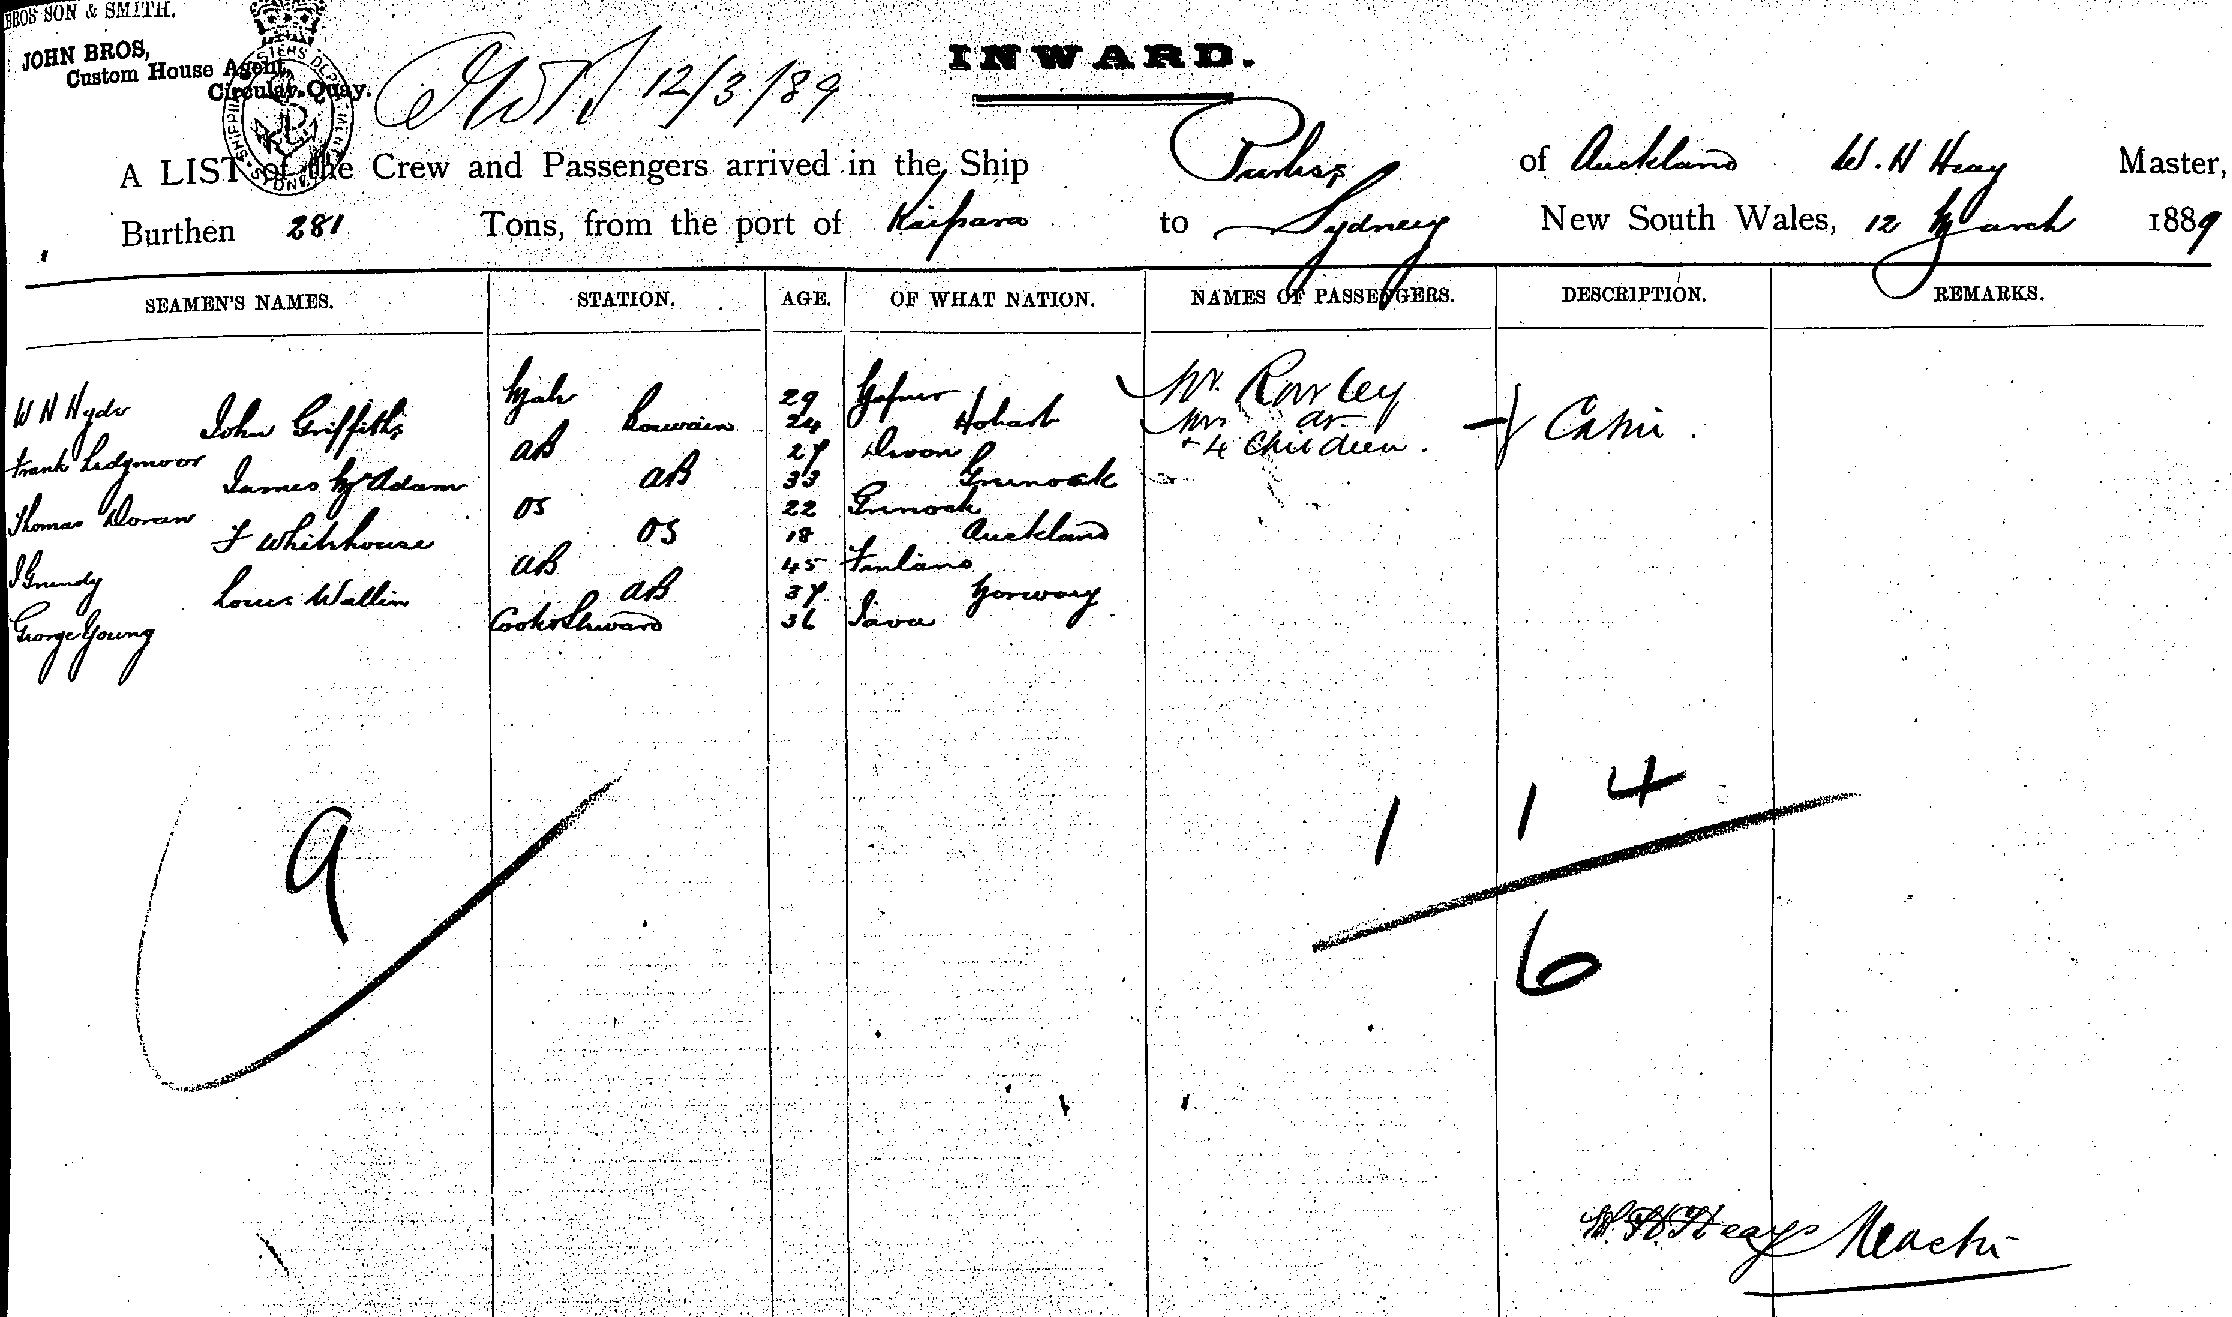 BROS SON & SMITH.
JOHN BROS,
Custom House Agent,
Circular Quay.
12/3/89
INWARD.
A LIST of the Crew and Passengers arrived in the Ship of Auckland W. H Heay Master,
Burthen 281 Tons, from the port of Kaipara to Sydney New South Wales, 12 March 1889
SEAMEN'S NAMES. STATION. AGE. OF WHAT NATION. NAMES OF PASSENGERS. DESCRIPTION. REMARKS.
W H Hyde Mate 29 Mr. Rowley
John Griffiths 24 Hobart Mrs do Cabin.
Frank Ledgmoor AB 27 Devon + 4 Children.
James McAdam AB 33 Greenock
Thomas Doran OS 22 Greenock
F Whitehouse OS 18 Auckland
J Grundy AB 45 Finland
Louis Wallin AB 37 Norway
George Young Cook & Steward 36 Java
9
1 1 4
6
W. H. Heay Master